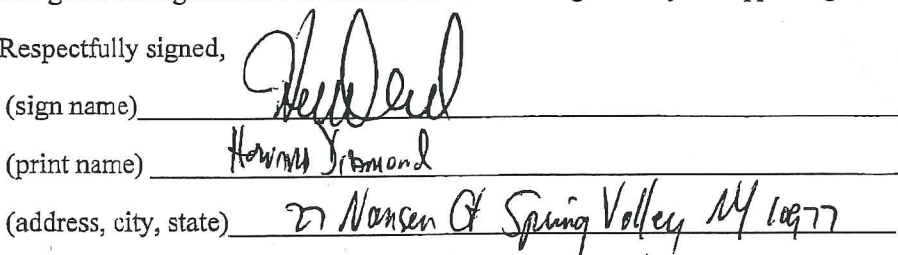 Respectfully signed,
(sign name)
(print name) Howard Diamond
(address, city, state) 27 Nansen Ct Spring Valley NY 10977